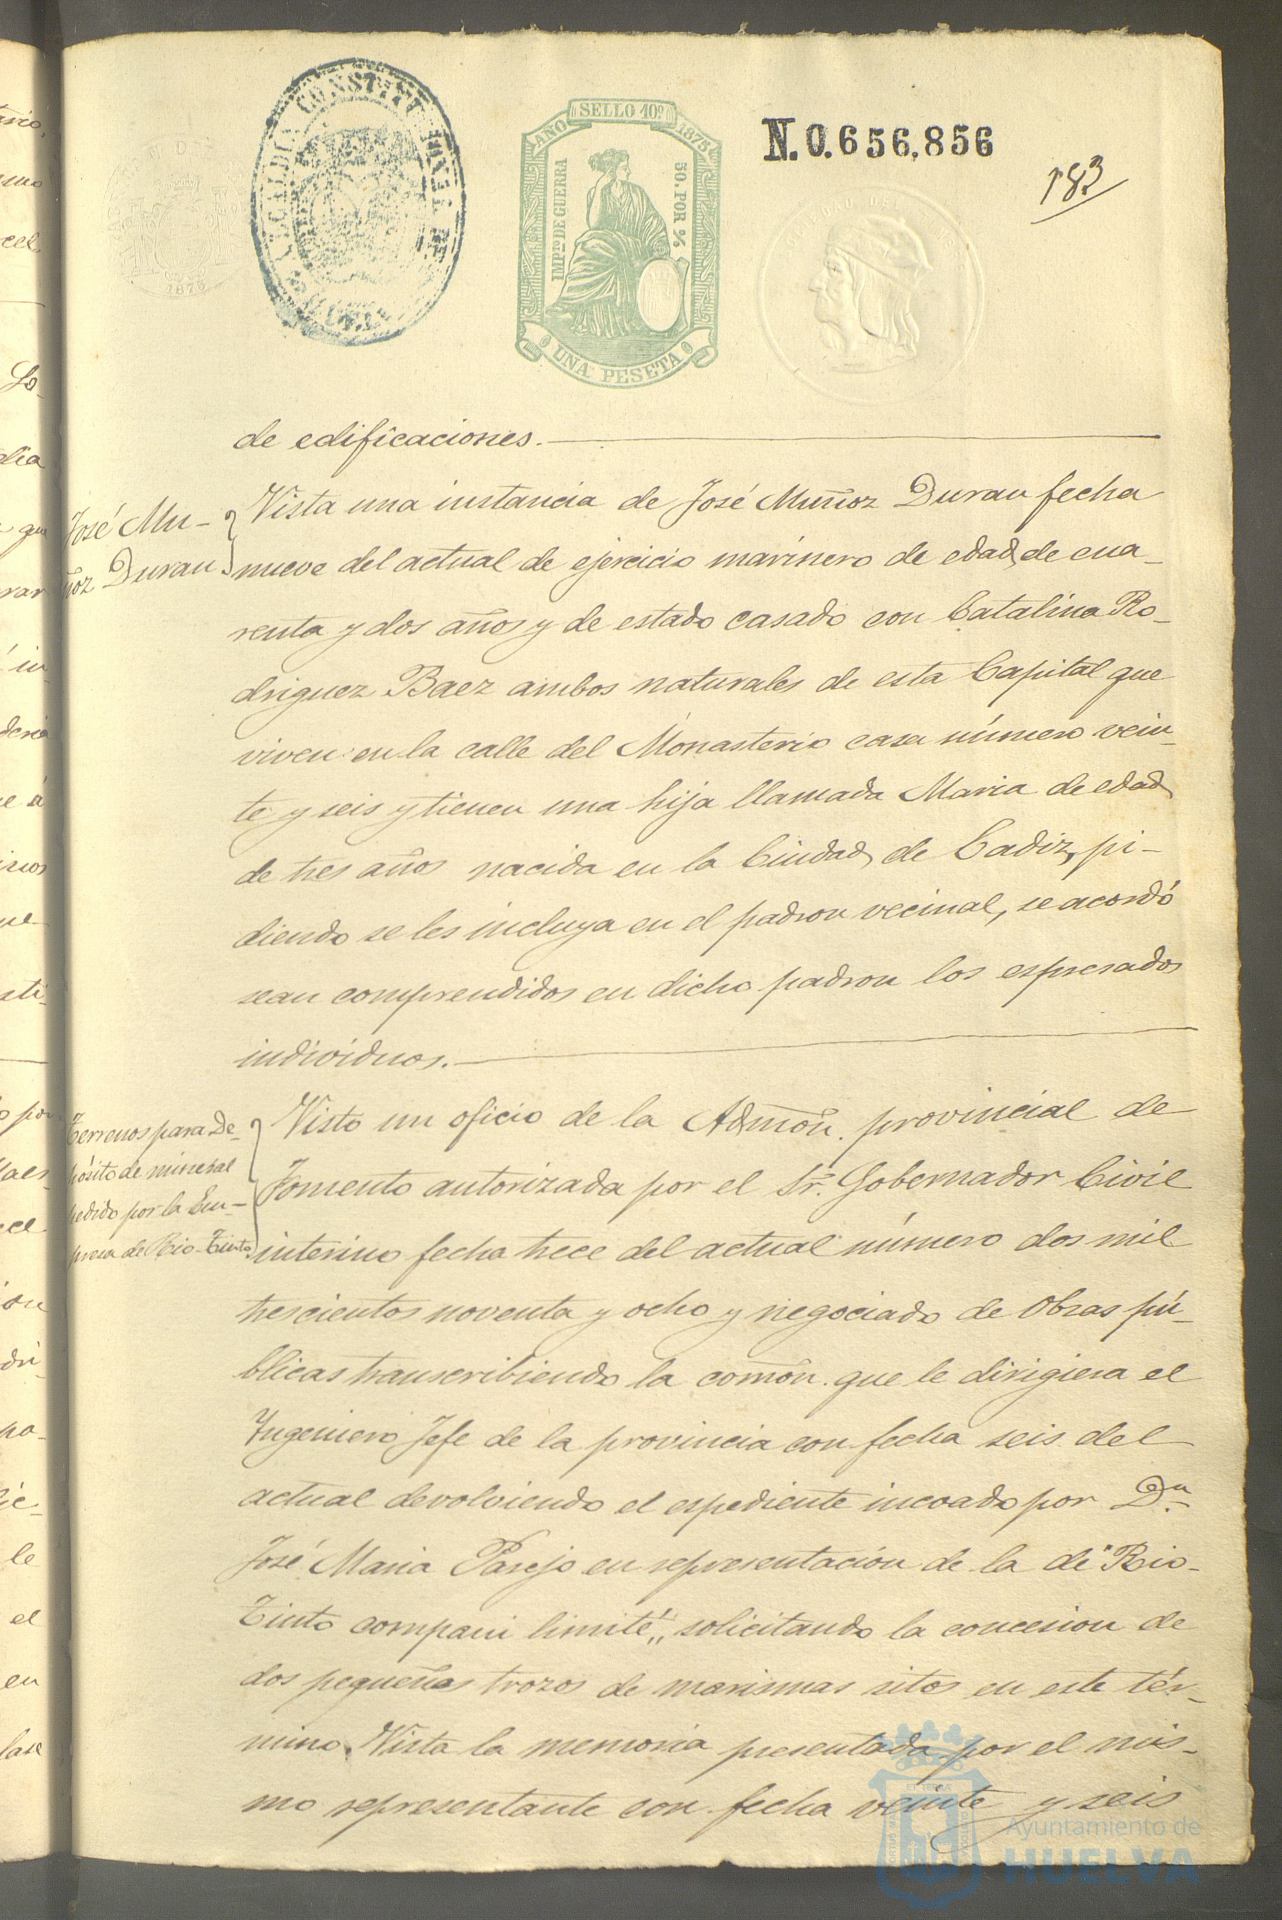 ALCALDIA CONSTITUCIONAL DE
AÑO SELLO 10º 1875
IMPTO DE GUERRA
50. POR %
UNA PESETA
1875
N. 0.656,856
183
de edificaciones.
José Mu-
ñoz Duran
Vista una instancia de José Muñoz Duran fecha
nueve del actual de ejercicio marinero de edad de cua-
renta y dos años y de estado casado con Catalina Ro-
driguez Baez ambos naturales de esta Capital que
viven en la calle del Monasterio casa número vein-
te y seis y tienen una hija llamada Maria de edad
de tres años nacida en la Ciudad de Cadiz, pi-
diendo se les incluya en el padron vecinal, se acordó
sean comprendidos en dicho padron los espresados
individuos.
Terrenos para De-
pósito de mineral
pedido por la Em-
presa de Rio-Tinto
Visto un oficio de la Admōn. provincial de
Fomento autorizada por el Sr. Gobernador Civil
interino fecha trece del actual número dos mil
trescientos noventa y ocho y negociado de Obras pú-
blicas transcribiendo la comōn. que le dirigiera el
Ingeniero Jefe de la provincia con fecha seis del
actual devolviendo el espediente incoado por Dn.
José Maria Parejo en representacion de la de "Rio-
Tinto compani limité" solicitando la concesion de
dos pequeños trozos de marismas sitos en este tér-
mino. Vista la memoria presentada por el mis-
mo representante con fecha veinte y seis
Ayuntamiento de
HUELVA